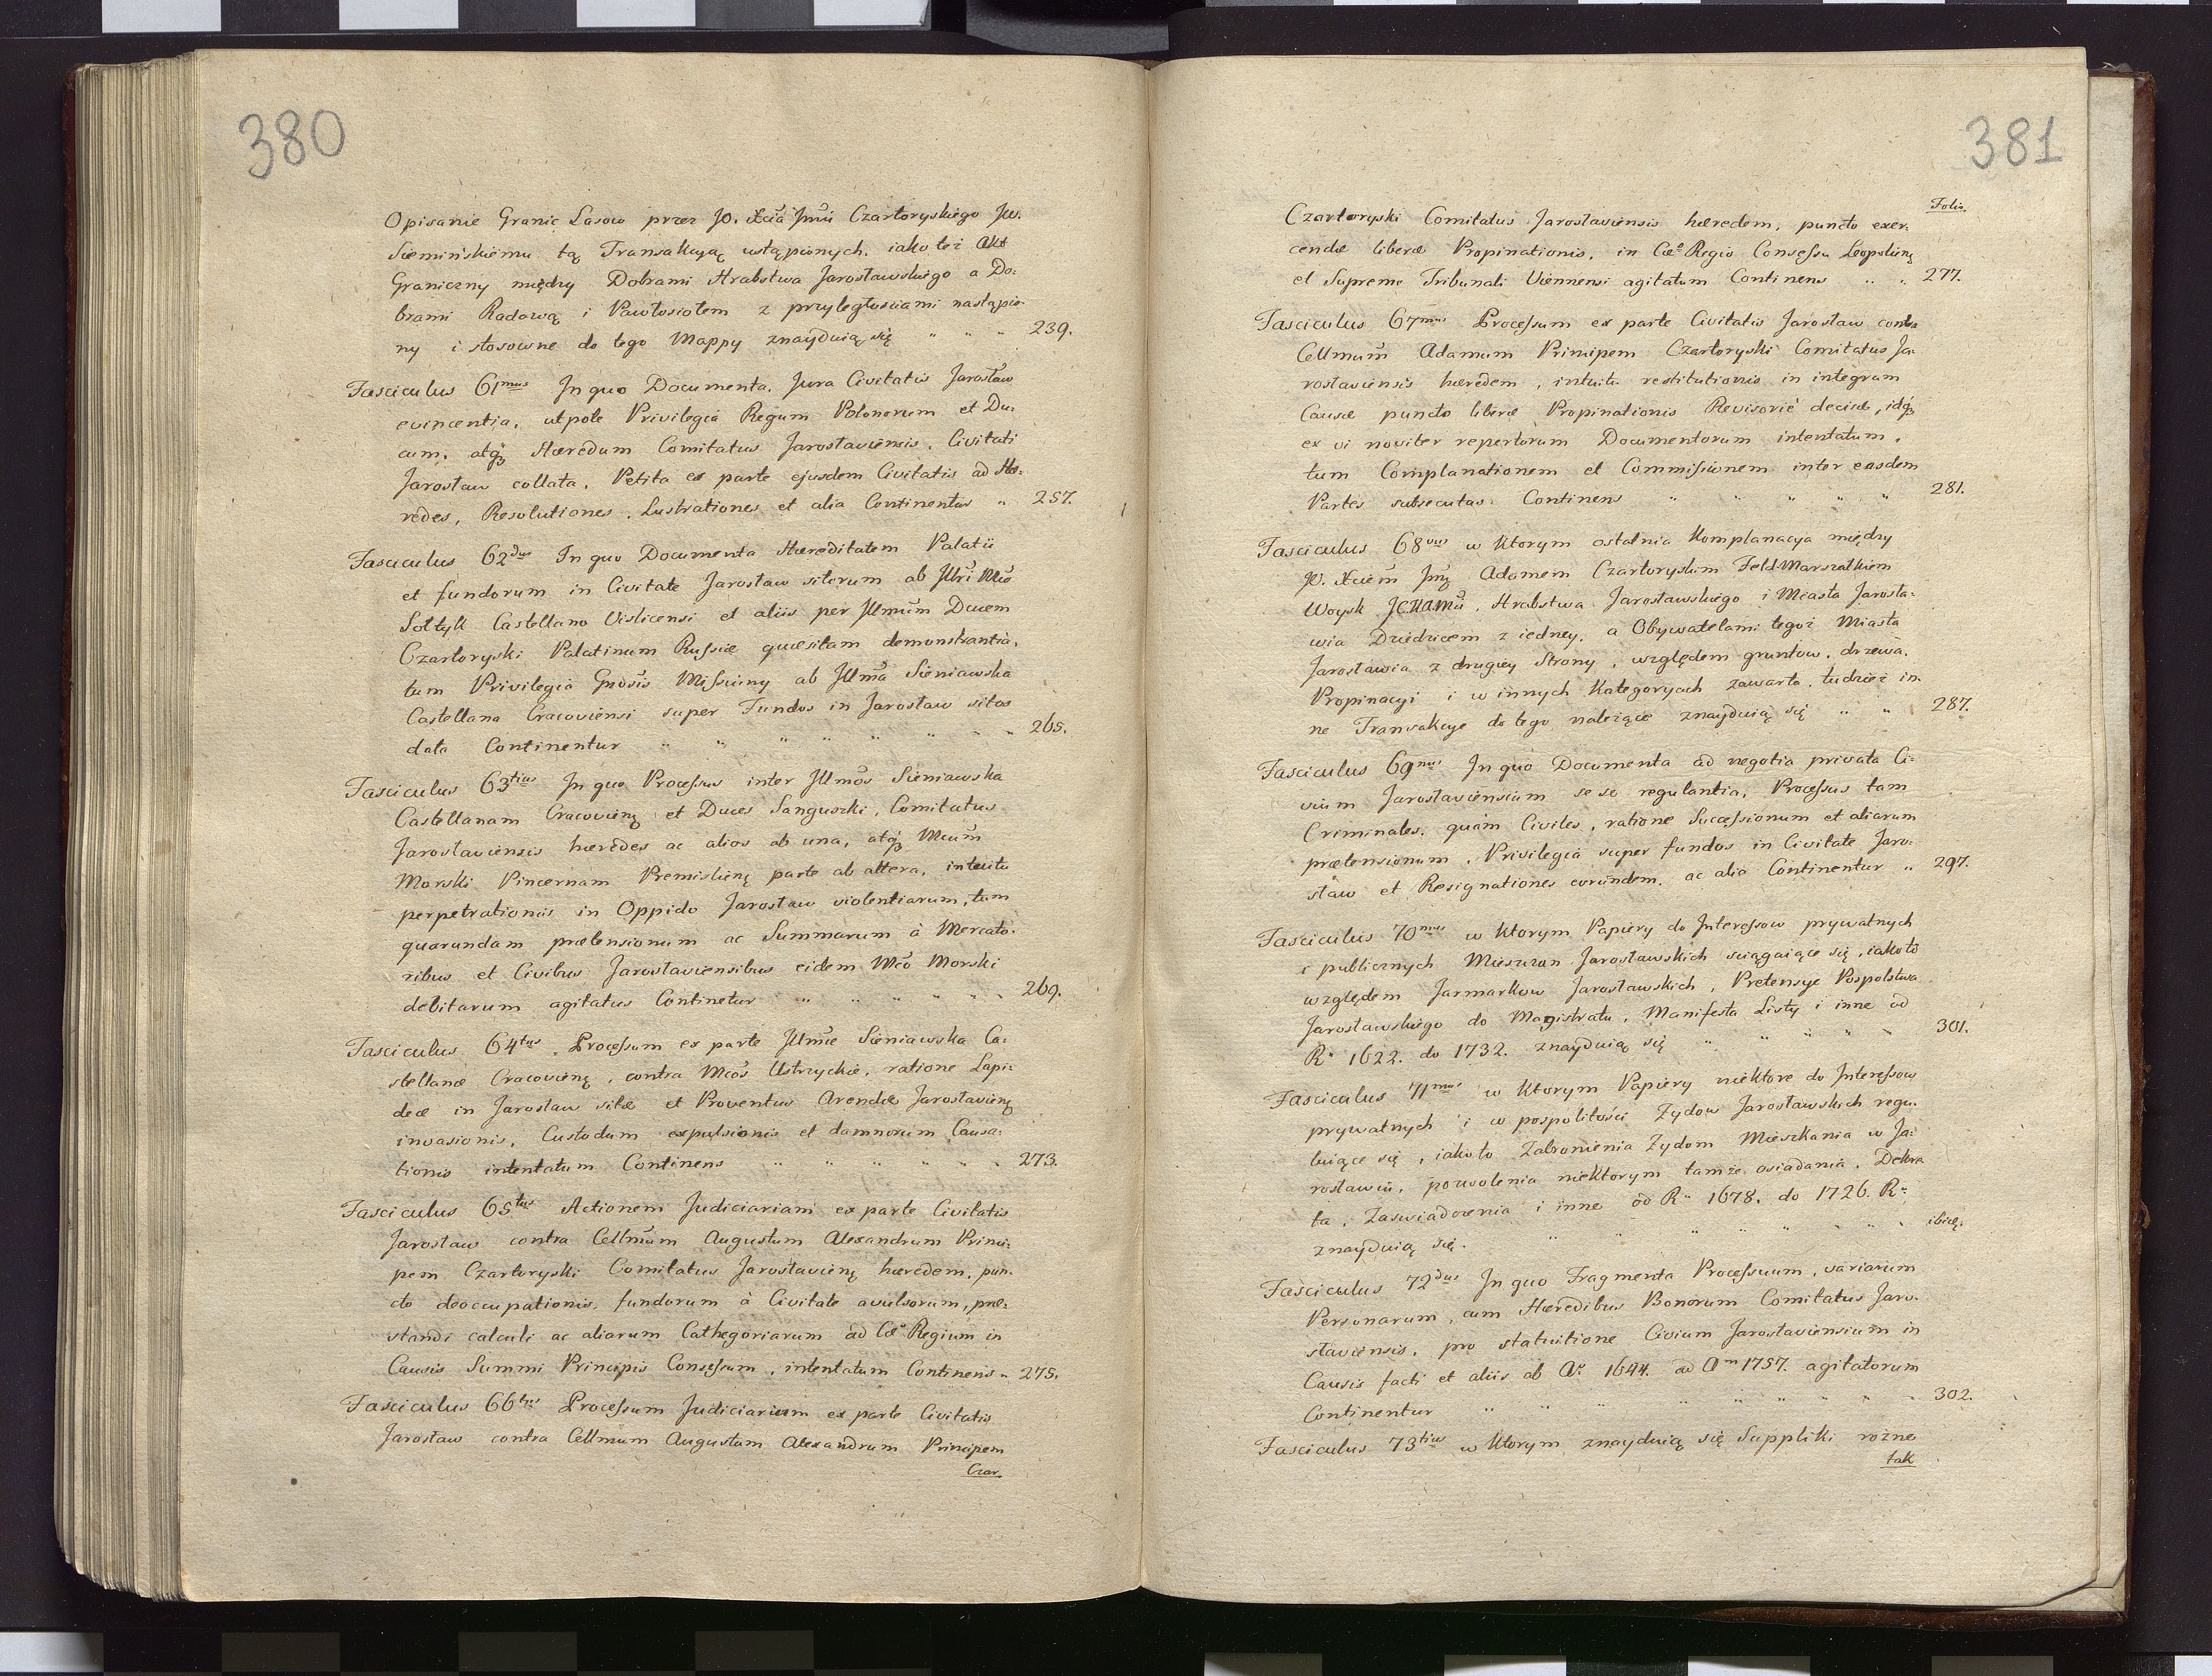 380
Opisanie Granic Lasow przez JO. Xcia Jmci Czartoryskiego JW.
Siemińskiemu tą Transakcyą ustąpionych, iako też Akt
Graniczny między Dobrami Hrabstwa Jarosławskiego a Do:
brami Radawą i Pawłosiołem z przyległosciami nastąpio
ny i stosowne do tego Mappy znayduią się " " " 239.
Fasciculus 61mus In quo Documenta, Jura Civitatis Jarosław
evincentia, utpote Privilegia Regum Polonorum et Du:
cum, atq3 Hæredum Comitatus Jarosłaviensis, Civitati
Jarosław collata, Petita ex parte ejusdem Civitatis ad Hæ:
redes, Resolutiones, Lustrationes et alia Continentur " 257.
Fasciculus 62dus In quo Documenta Hæreditatem Palatii
et fundorum in Civitate Jarosław sitorum ab Illri Mco
Sołtyk Castellano Visliensi et aliis per Illmum Ducem
Czartoryski Palatinum Russiæ quæsitam demonstrantia,
tum Privilegia Gnosis Missiuny ab Illma Sieniawska
Castellana Cracoviensi super Fundos in Jarosław sitos
data Continentur " " " " " " " " 265.
Fasciculus 63tius In quo Processus inter Illmos Sieniawska
Castellanam Cracovienę et Duces Sanguszki, Comitatus
Jarosłaviensis hæredes ac alios ab una, atq3 Mcum
Morski Pincernam Premislienę parte ab altera, intuitu
perpetrationis in Oppido Jarosław violentiarum, tum
quarundam prætensionum ac Summarum à Mercato:
ribus et Civibus Jarosłaviensibus eidem Mco Morski
debitarum agitatus Continetur " " " " " 269.
Fasciculus 64tus Processum ex parte Illmæ Sieniawska Ca:
stellanæ Cracovienę, contra Mcos Ustrzyckie, ratione Lapi:
deæ in Jarosław sitæ et Proventus Arendæ Jarosłavienę
invasionis, Custodum expulsionis et damnorum Causa:
tionis intentatum Continens " " " " " " 273.
Fasciculus 65tus Actionem Judiciariam ex parte Civitatis
Jarosław contra Cellmum Augustum Alexandrum Princi:
pem Czartoryski Comitatus Jarosłavienę hæredem, pun:
cto deoccupationis fundorum à Civitate avulsorum, præ:
standi calculi ac aliarum Cathegoriarum ad Cæo Regium in
Causis Summi Principis Consessum, intentatum Continens " 275.
Fasciculus 66tus Processum Judiciarium ex parte Civitatis
Jarosław contra Cellmum Augustum Alexandrum Principem
Czar
381
Folio.
Czartoryski Comitatus Jarosłaviensis hæredem, puncto exer:
cendæ liberæ Propinationis, in Cæo Regio Consessu Leopolienę
et Supremo Tribunali Viennensi agitatum Continens " " 277.
Fasciculus 67mus Processum ex parte Civitatis Jarosław contra
Cellmum Adamum Principem Czartoryski Comitatus Ja:
rosłaviensis hæredem, intuitu restitutionis in integrum
Causæ puncto liberæ Propinationis Revisoriè decisæ, idq3
ex vi noviter repertorum Documentorum intentatum,
tum Complanationem et Commissionem inter easdem
Partes subsecutas Continens " " " " " 281.
Fasciculus 68vus w Ktorym ostatnia Komplanacya między
JO. Xciem Jmą Adamem Czartoryskim Feld Marszałkiem
Woysk JCKAMci, Hrabstwa Jarosławskiego i Miasta Jarosła:
wia Dziedzicem z iedney, a Obywatelami tegoż Miasta
Jarosławia z drugiey Strony, względem gruntow, drzewa,
Propinacyi i w innych Kategoryach zawarta, tudzież in:
ne Transakcye do tego należące znayduią się " " 287.
Fasciculus 69nus In quo Documenta ad negotia privata Ci:
vium Jarosłaviensium se se regulantia, Processus tam
Criminales, quàm Civiles, ratione Successionum et aliarum
prætensionum, Privilegia super fundos in Civitate Jaro:
sław et Resignationes eorundem, ac alia Continentur " 297.
Fasciculus 70mus w Ktorym Papiery do Interessow prywatnych
i publicznych Mieszczan Jarosławskich sciągaiące się, iako to
względem Jarmarkow Jarosławskich, Pretensye Pospolstwa
Jarosławskiego do Magistratu, Manifesta Listy i inne od
Ru 1622. do 1732. znayduią się " " " " " 301.
Fasciculus 71mus w Ktorym Papiery niektore do Interessow
prywatnych i w pospolitości Żydow Jarosławskich regu:
luiące się, iako to Zabronienia Żydom Mieszkania w Ja:
rosławiu, pozwolenia niektorym tamże osiadania, Dekre
ta, Zaswiadczenia i inne od Ru 1678. do 1726. Ru
znayduią się. " " " " " " " ibidę.
Fasciculus 72dus In quo Fragmenta Processuum, variarum
Personarum, cum Hæredibus Bonorum Comitatus Jaro:
sławiensis, pro statuitione Civium Jarosłaviensium in
Causis facti et aliis ab Ao 1644. ad Am 1757. agitatorum
Continentur " " " " " " " " 302.
Fasciculus 73tius w Ktorym znayduią się Suppliki rożne
tak